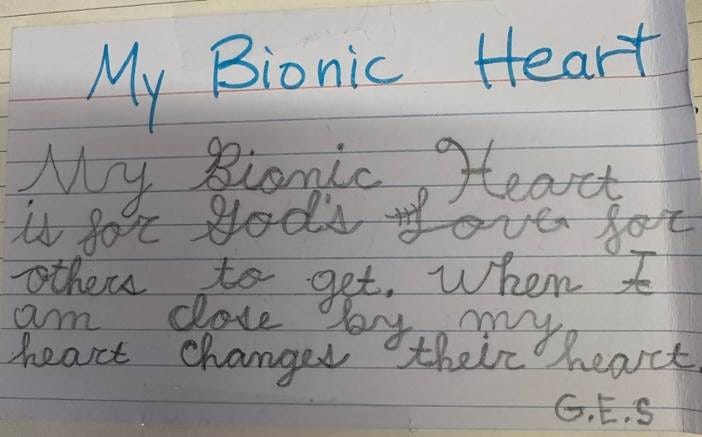 My Bionic Heart
My Bionic Heart
is for God's Love for
others to get. When I
am close by my
heart changes their heart.
G.E.S